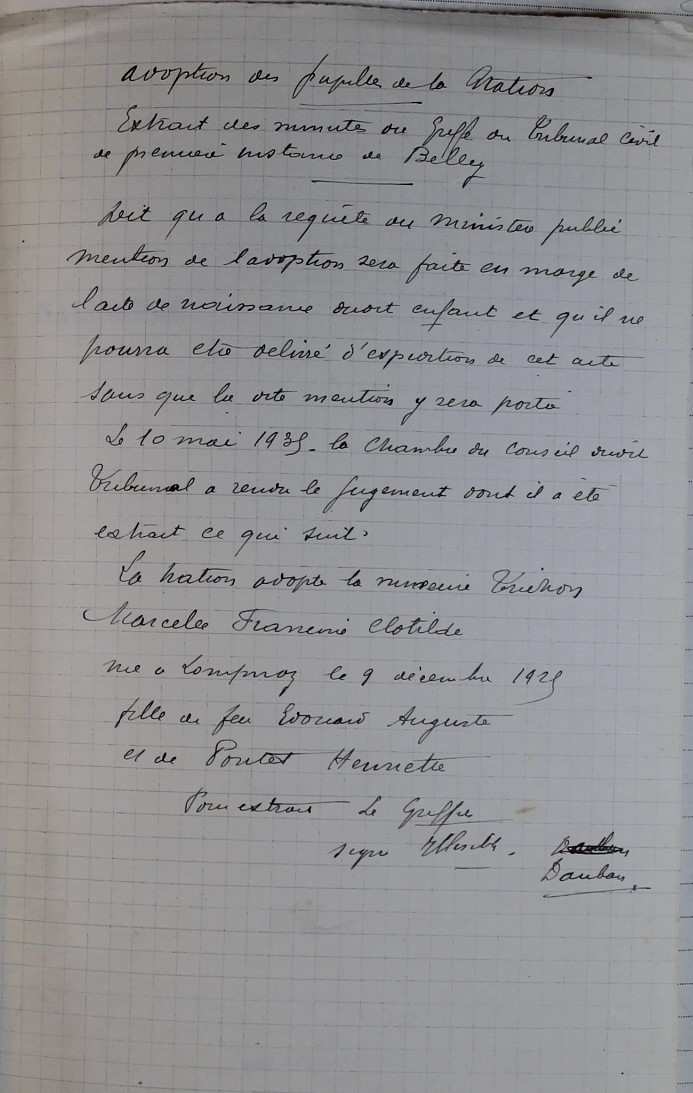 adoption des pupilles de la Nation
Extrait des minutes du Greffe du Tribunal Civil
de première instance de Belley
Dit qu'a la requête du ministère public
mention de l'adoption sera faite en marge de
l'acte de naissance dudit enfant et qu'il ne
pourra etre délivré d'expedition de cet acte
sans que la dite mention y sera portée
Le 10 mai 1935. la Chambre du Conseil dudit
Tribunal a rendu le jugement dont il a été
extrait ce qui suit:
La nation adopte la mineure
Marcelle Francine Clotilde
née a Lompnaz le 9 décembre 1925
fille de feu Edouard Auguste
et de Pontet Henriette
Pour extrait Le Greffier
signé
Dauban.